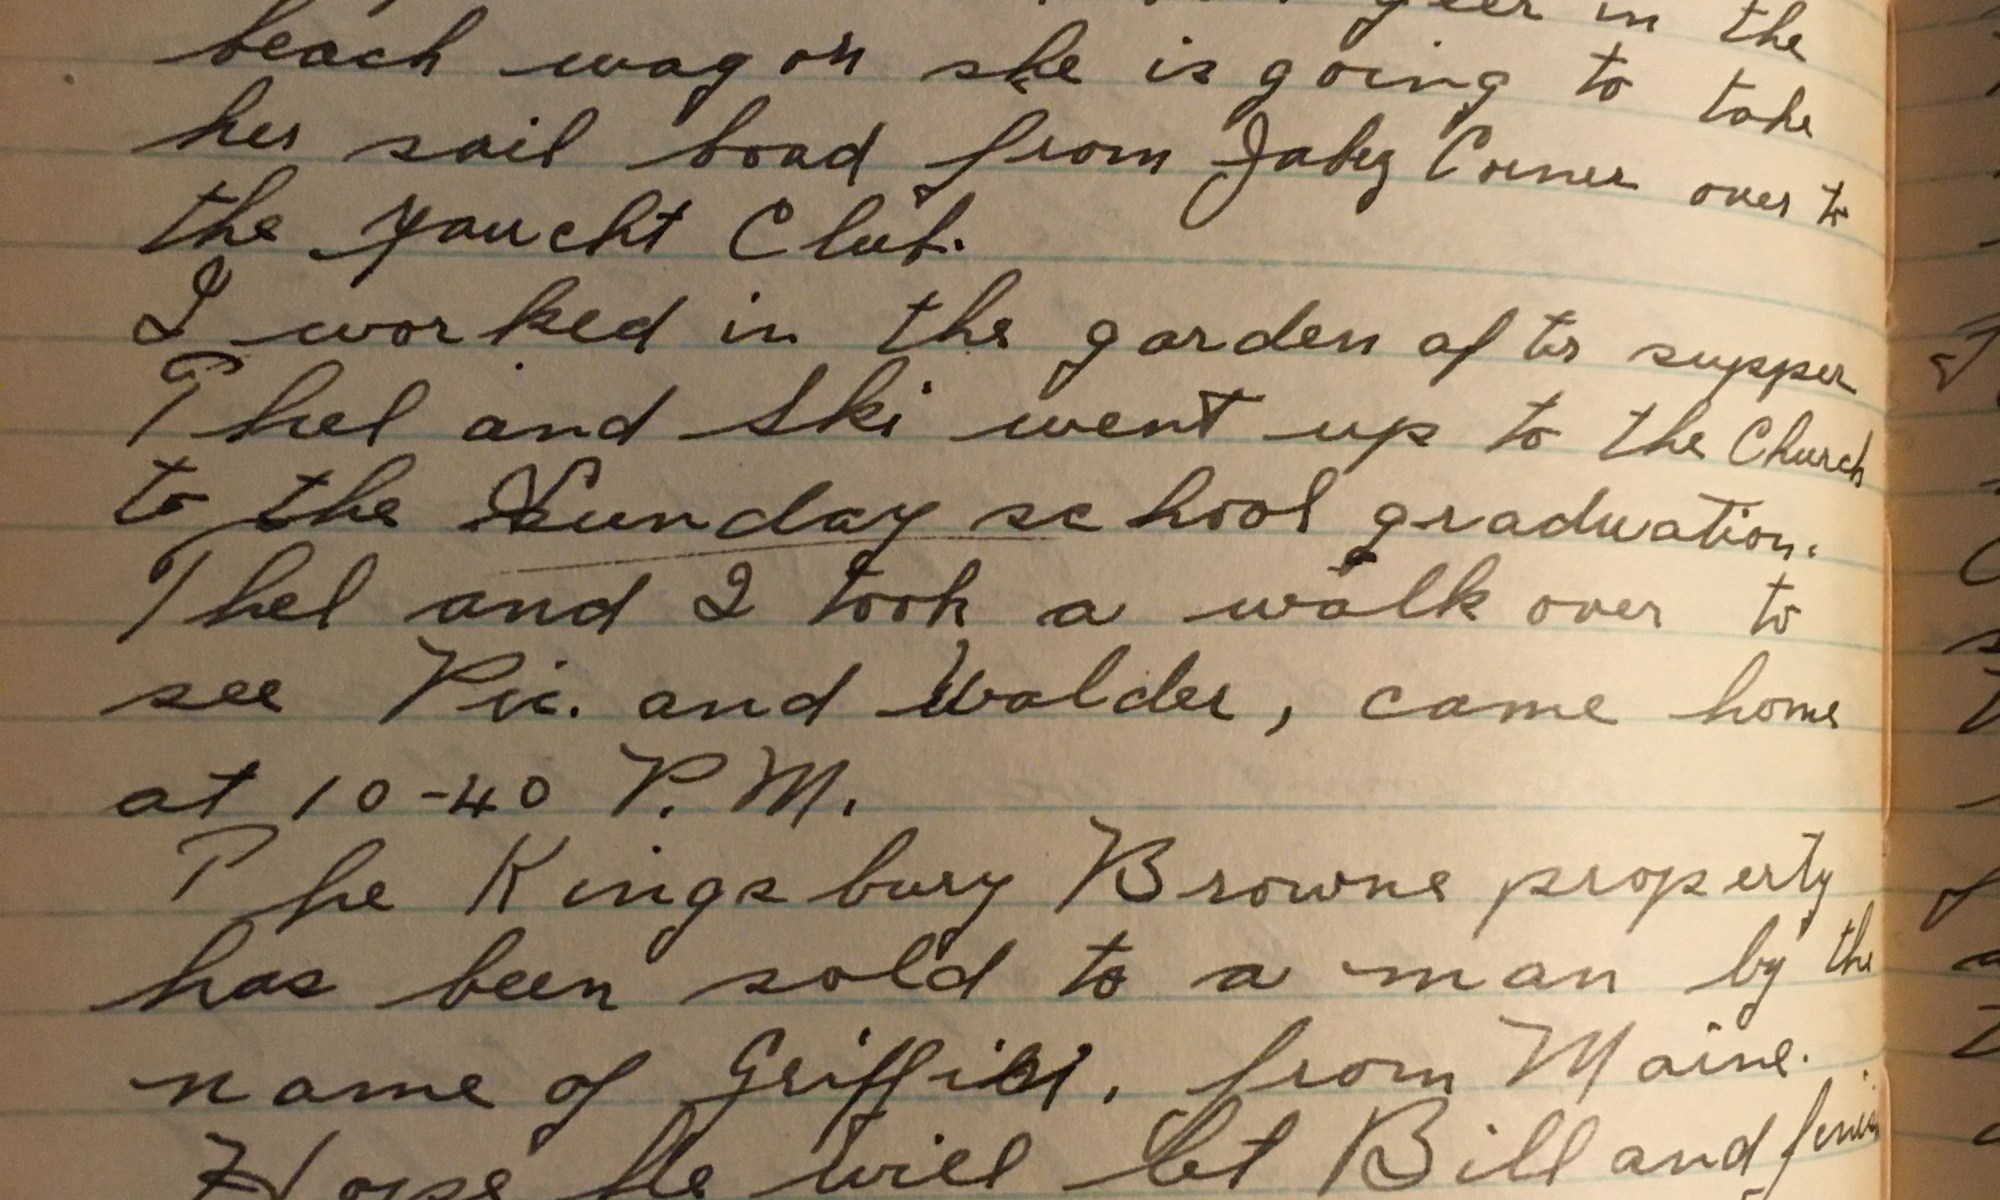 geer in the
beach wagon she is going to take
her sail boad from Jabez Corner over to
the yaucht Club.
I worked in the garden after supper
Thel and Ski went up to the Church
to the Sunday school graduation.
Thel and I took a walk over to
see Vic. and Walder, came home
at 10-40 P.M.
The Kingsbury Browne property
has been sold to a man by the
name of from Maine.
Hope he will let Bill and